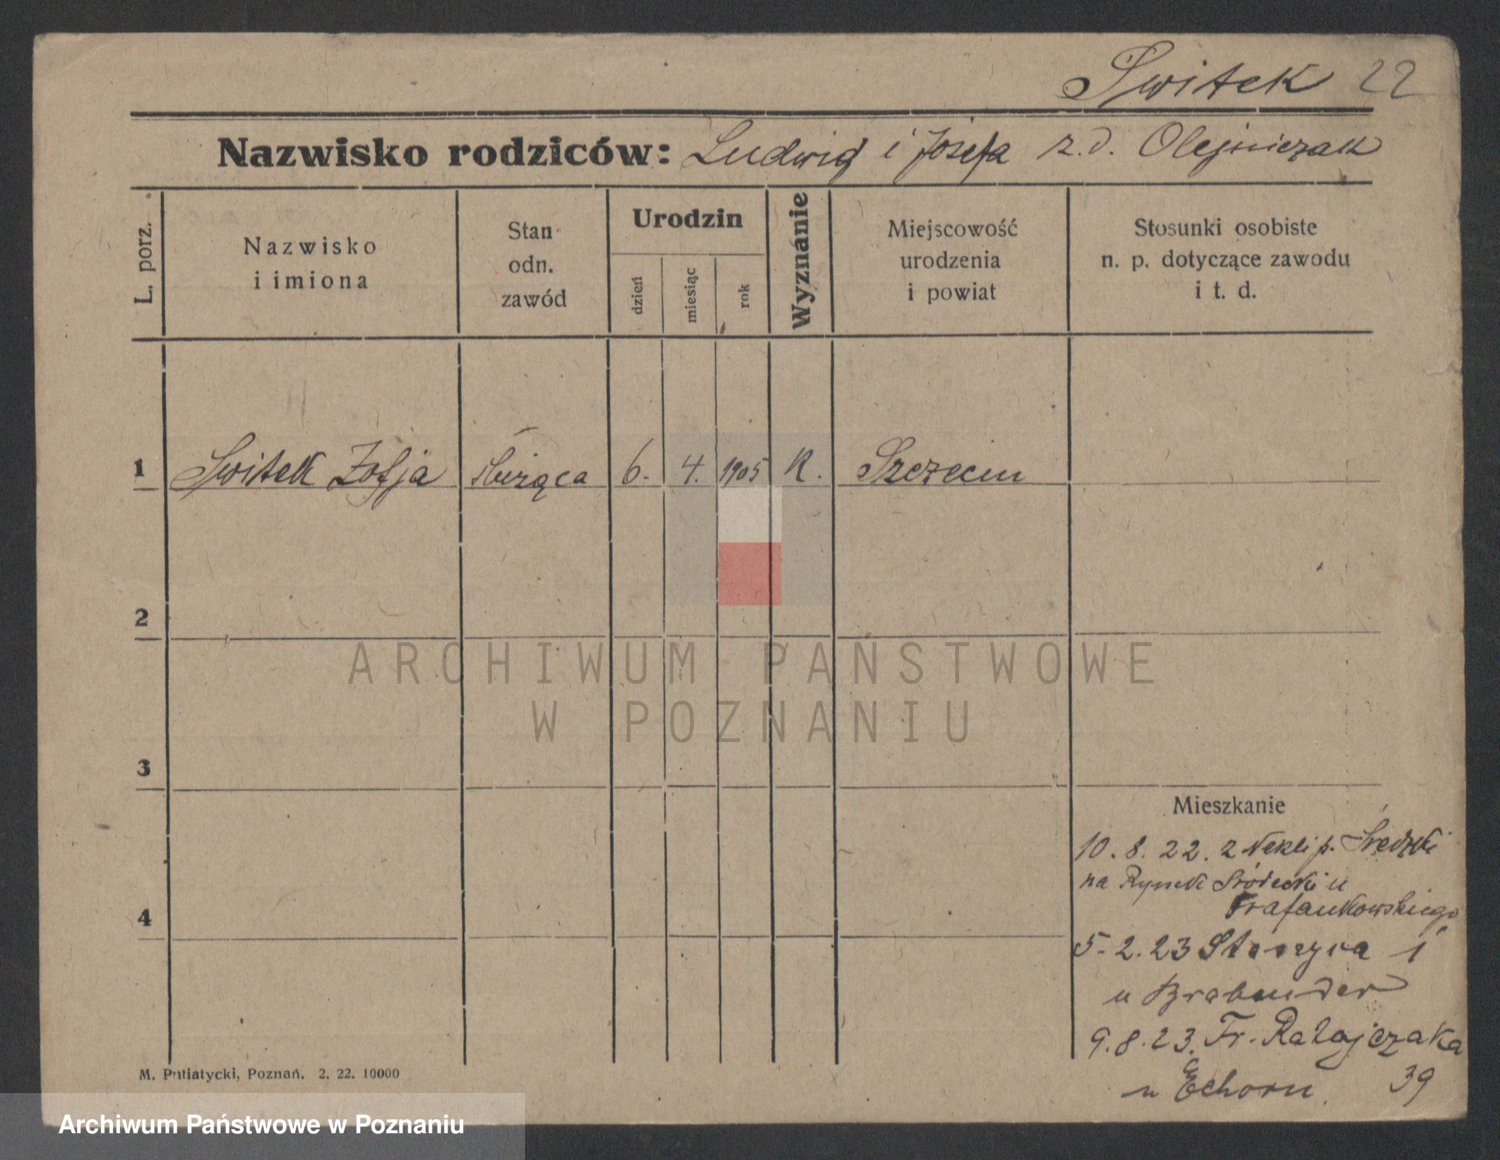 Switek 22
Nazwisko rodziców: Ludwig i Józefa z.d. Olejniczak
L. porz.
Nazwisko
i imiona
Stan
odn.
zawód
Urodzin
dzień
miesiąc
rok
Wyznanie
Miejscowość
urodzenia
i powiat
Stosunki osobiste
n. p. dotyczące zawodu
i t. d.
1 Switek Zofja służąca 6. 4. 1905 K. Szczecin
2
ARCHIWUM PAŃSTWOWE
W POZNANIU
3
Mieszkanie
10. 8. 22. z Nekli p. Średzki
na Rynek Śródecki u
Trafankowskiego
4
5. 2. 23 1
u Brabander
9. 8. 23. Fr. Ratajczaka
39
u Echorn
M. Putiatycki, Poznań. 2. 22. 10000
Archiwum Państwowe w Poznaniu